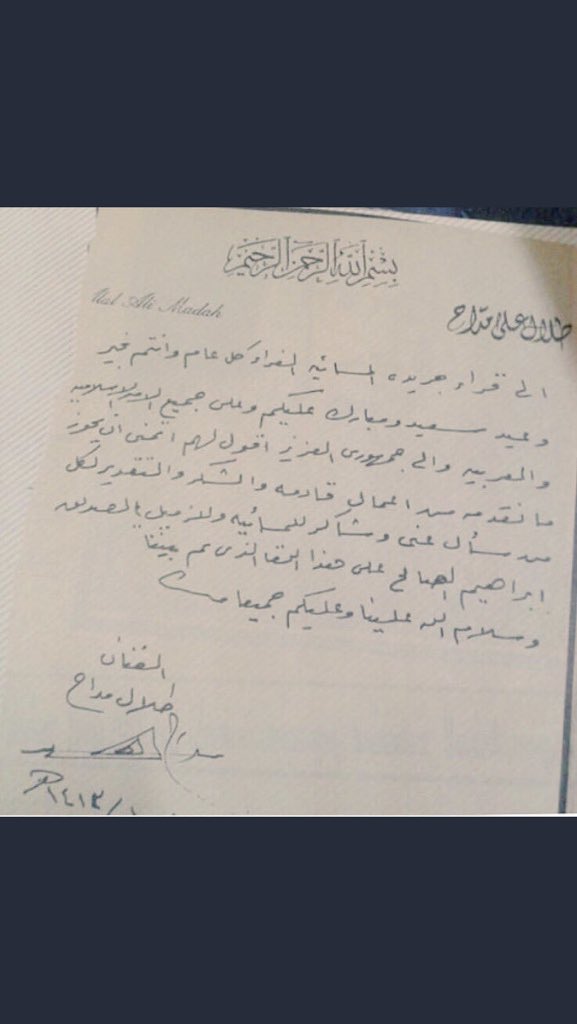 بسم الله الرحمن الرحيم
طلال علي مداح
Ali Madah
الى قراء جريده المسائيه الغراء كل عام وانتم بخير
وعيد سعيد ومبارك عليكم وعلى جميع الامه الاسلاميه
والعربيه والى جمهورى العزيز اقول لهم اتمنى ان يحوز
ما نقدمه من اعمال قادمه والشكر والتقدير لكل
من سأل عنى وشاكر للمسائيه وللزميل الصديق
ابراهيم الصالح على هذا اللقا الذى تم بيننا
وسلام الله علينا وعليكم جميعا
الفنان
طلال مداح
١٤١٣/